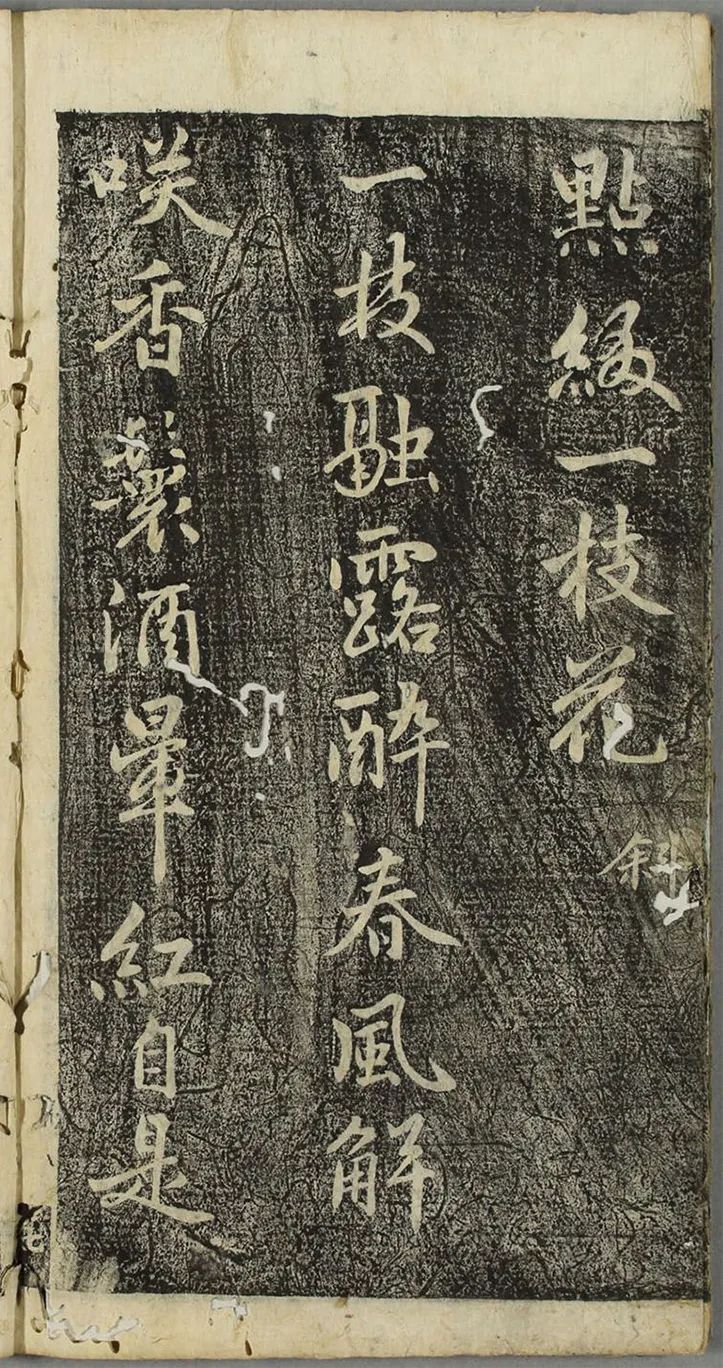 點綴一枝花
斜
一枝融露酔春風解
咲香鬟酒暈紅自是